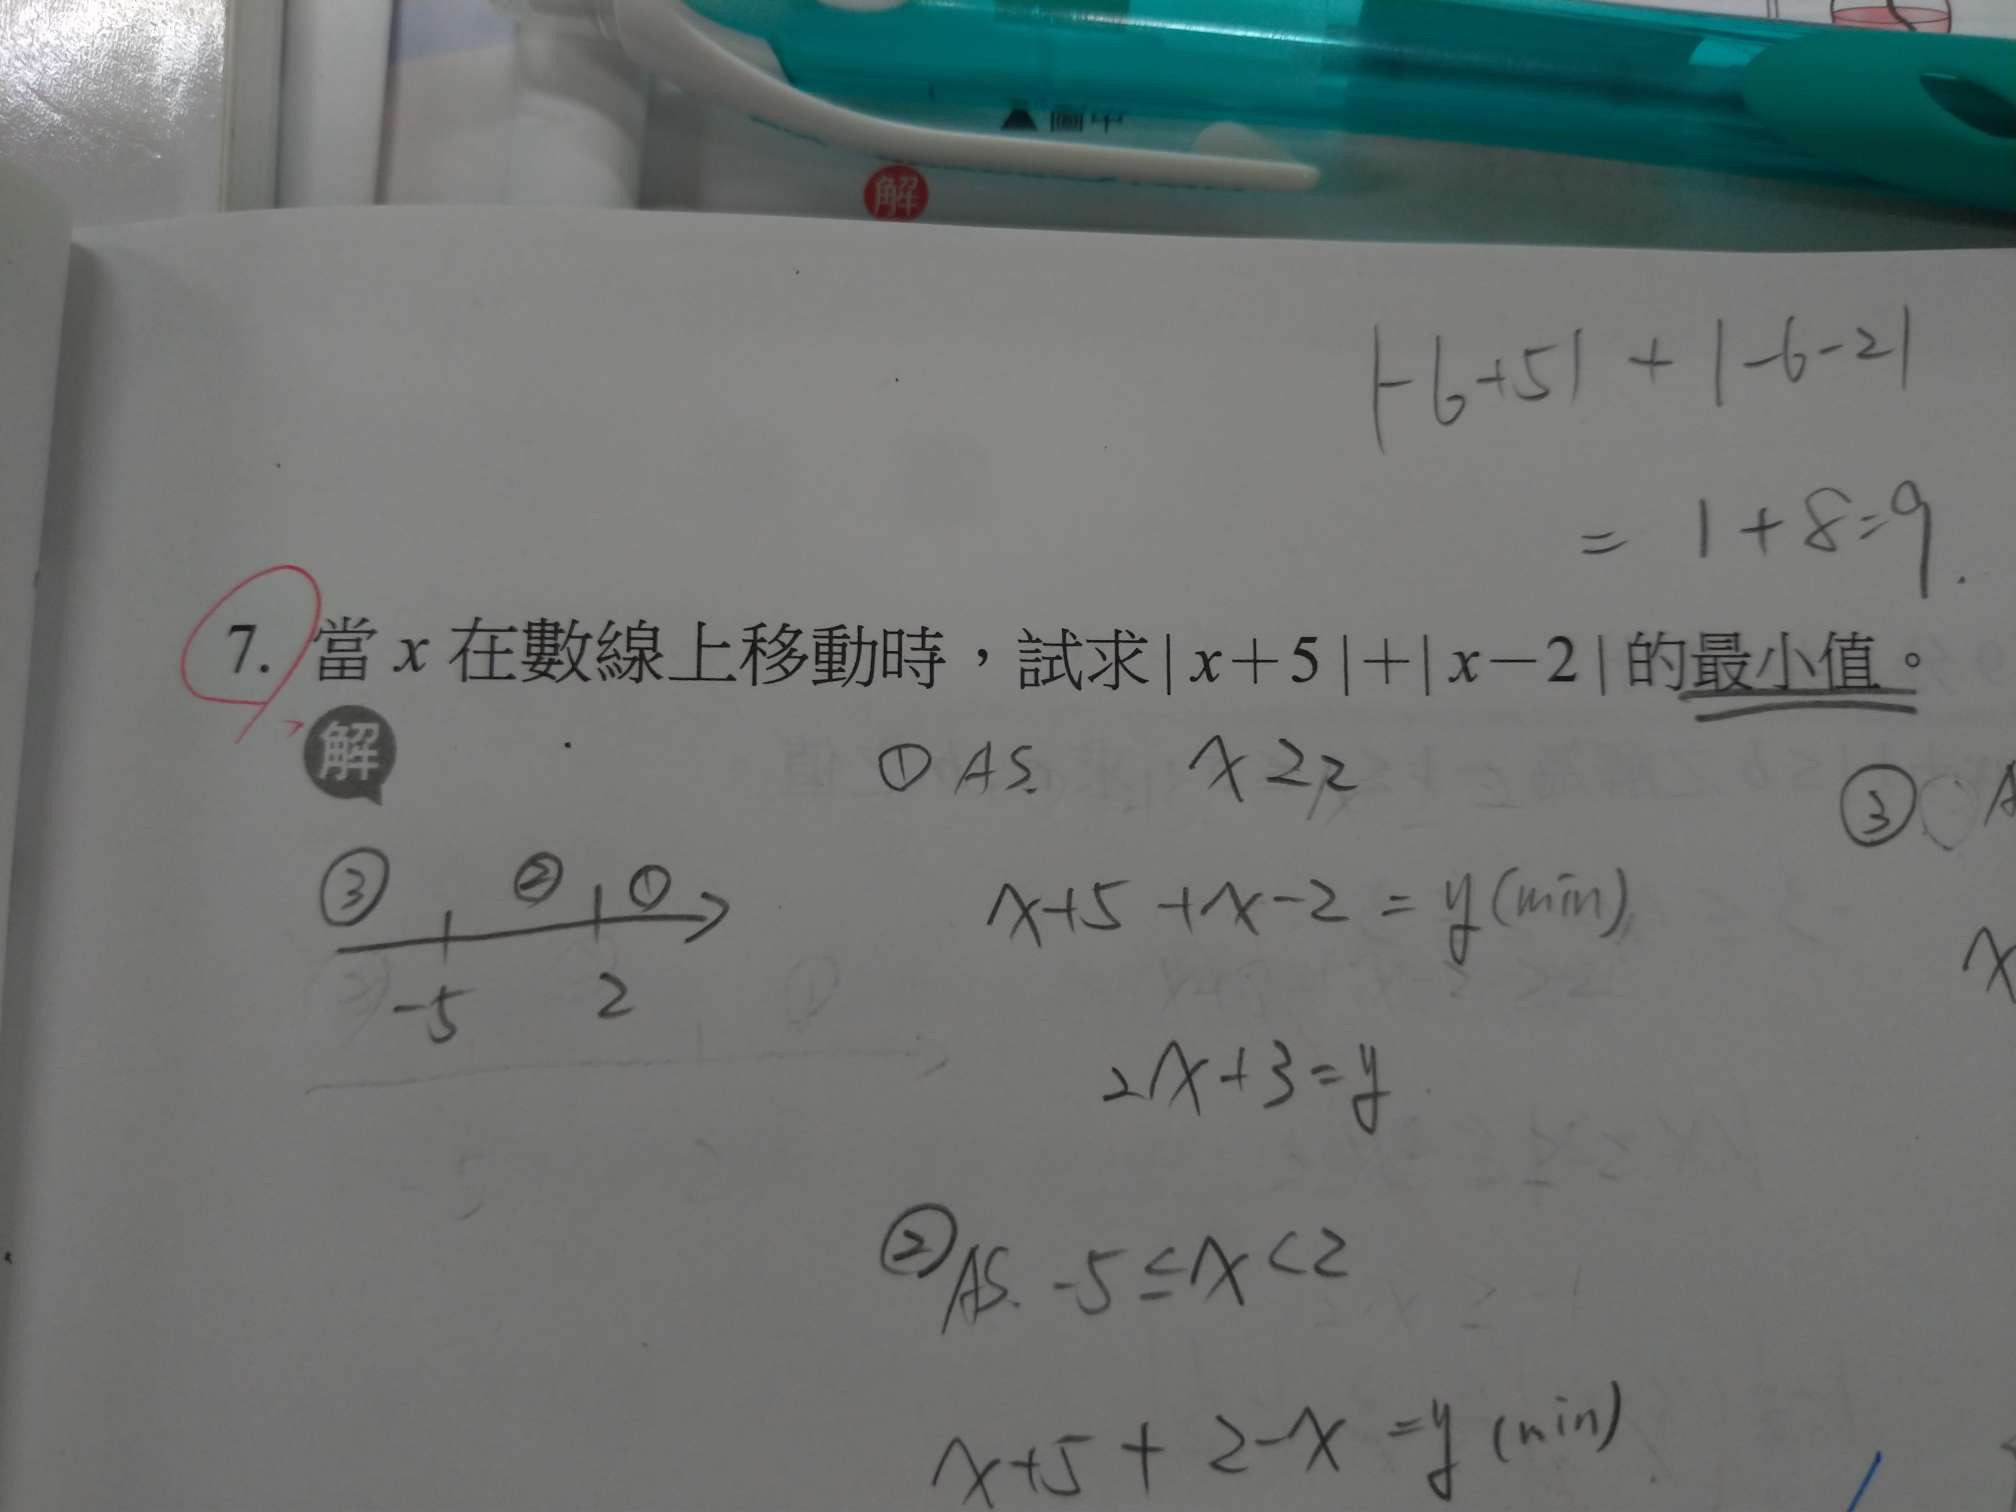 圖中
解
|-6+5| + |-6-2|
= 1+8=9.
7. 當 x 在數線上移動時，試求|x+5|+|x-2|的最小值。
解
① AS. x≥2
③ A
③ ② ①
-5 2
x+5 +x-2 = y (min)
x
2x+3=y
② AS. -5≤x<2
x+5 + 2-x =y (min)